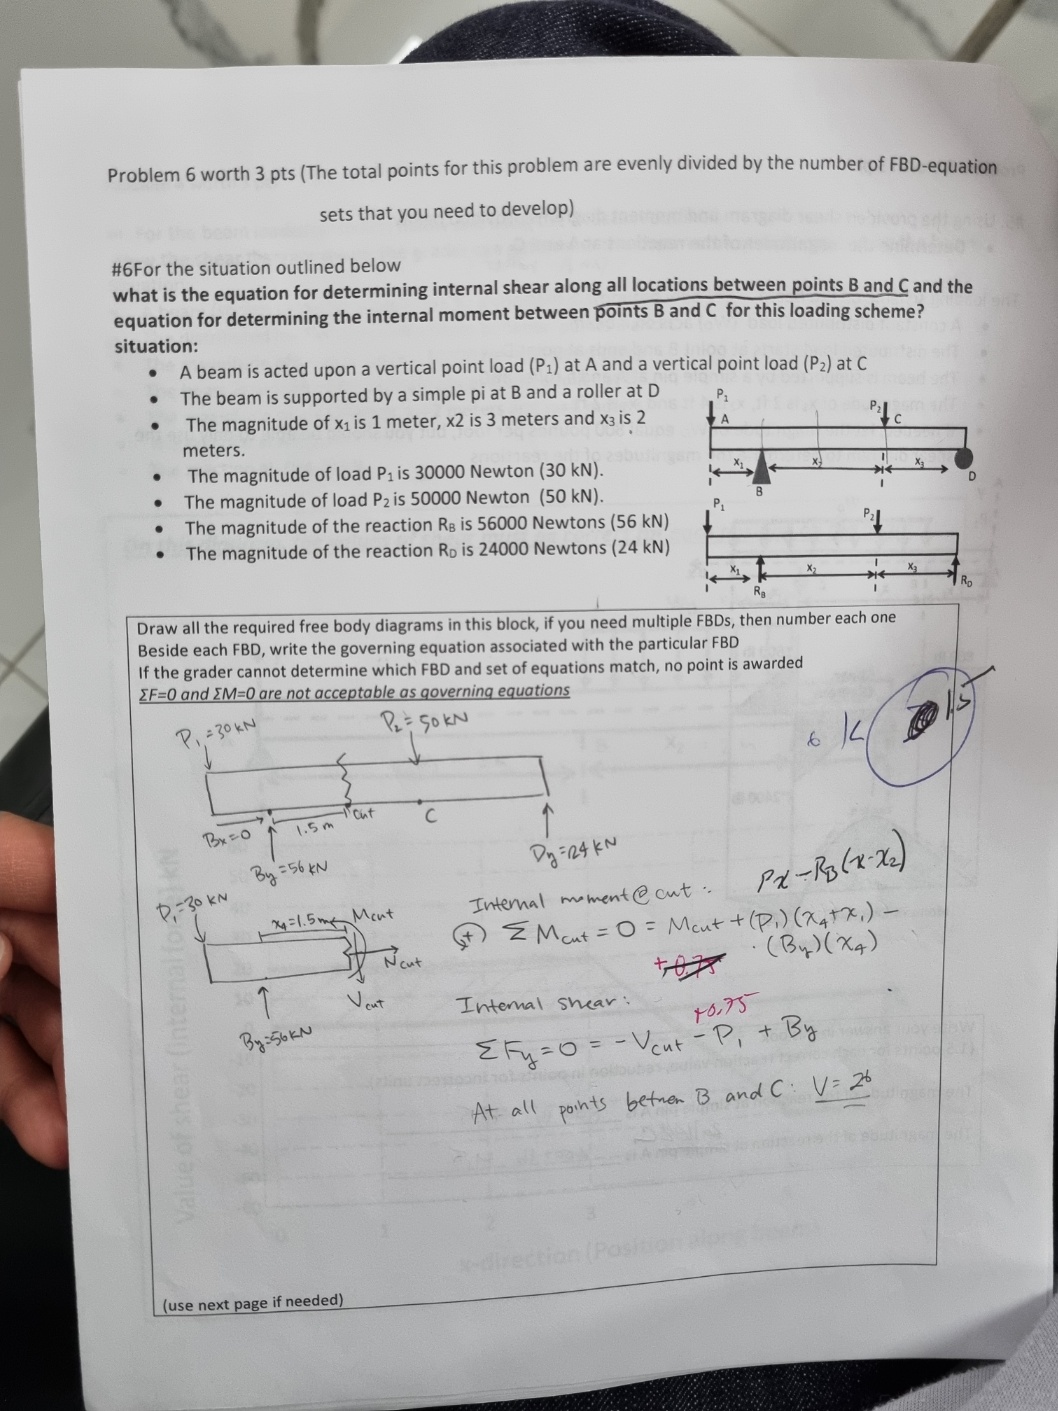 Problem 6 worth 3 pts (The total points for this problem are evenly divided by the number of FBD-equation
sets that you need to develop)
#6For the situation outlined below
what is the equation for determining internal shear along all locations between points B and C and the
equation for determining the internal moment between points B and C for this loading scheme?
situation:
• A beam is acted upon a vertical point load (P₁) at A and a vertical point load (P₂) at C
• The beam is supported by a simple pi at B and a roller at D
• The magnitude of x₁ is 1 meter, x2 is 3 meters and x₃ is 2
meters.
• The magnitude of load P₁ is 30000 Newton (30 kN).
• The magnitude of load P₂ is 50000 Newton (50 kN).
• The magnitude of the reaction R_B is 56000 Newtons (56 kN)
• The magnitude of the reaction R_D is 24000 Newtons (24 kN)
P₁
A
P₂
C
x₁
x₃
B
D
P₁
P₂
x₁
x₂
x₃
R_B
R_D
Draw all the required free body diagrams in this block, if you need multiple FBDs, then number each one
Beside each FBD, write the governing equation associated with the particular FBD
If the grader cannot determine which FBD and set of equations match, no point is awarded
ΣF=0 and ΣM=0 are not acceptable as governing equations
P₁=30 kN
P₂=50 kN
1.5
Bx=0
1.5 m
cut
C
By=56 kN
Dy=24 kN
P₁=30 kN
x₄=1.5m
Mcut
Ncut
Vcut
By=56kN
Internal moment @ cut:
Px-R_B(x-x₂)
(+) ΣMcut = 0 = Mcut + (P₁)(x₄+x₁) -
(By)(x₄)
+0.75
Internal shear:
+0.75
ΣFy=0 = -Vcut - P₁ + By
At all points between B and C: V=26
(use next page if needed)